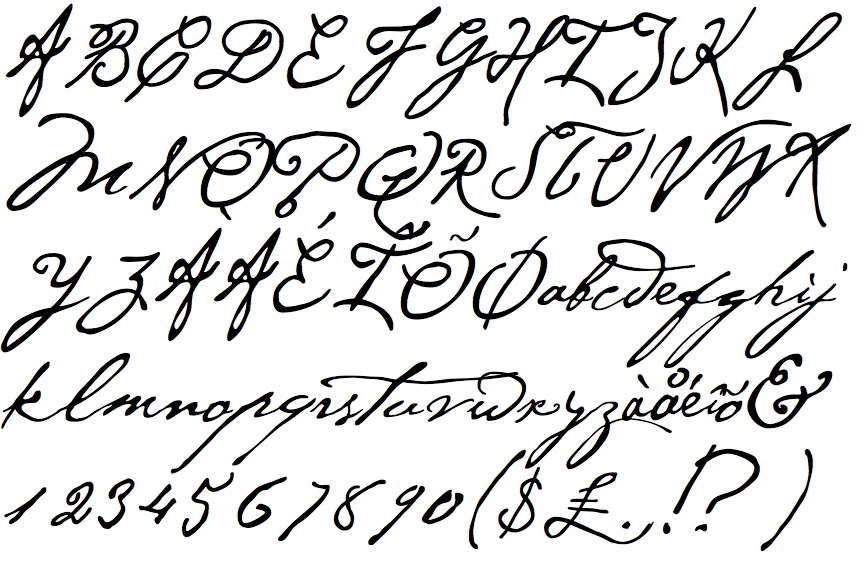 ABCDEFGHIJKL
MNOPQRSTUVWX
YZÀÅÉÎÕØabcdefghij
klmnopqrstuvwxyzàåéîõ&
1234567890($£.,!?)